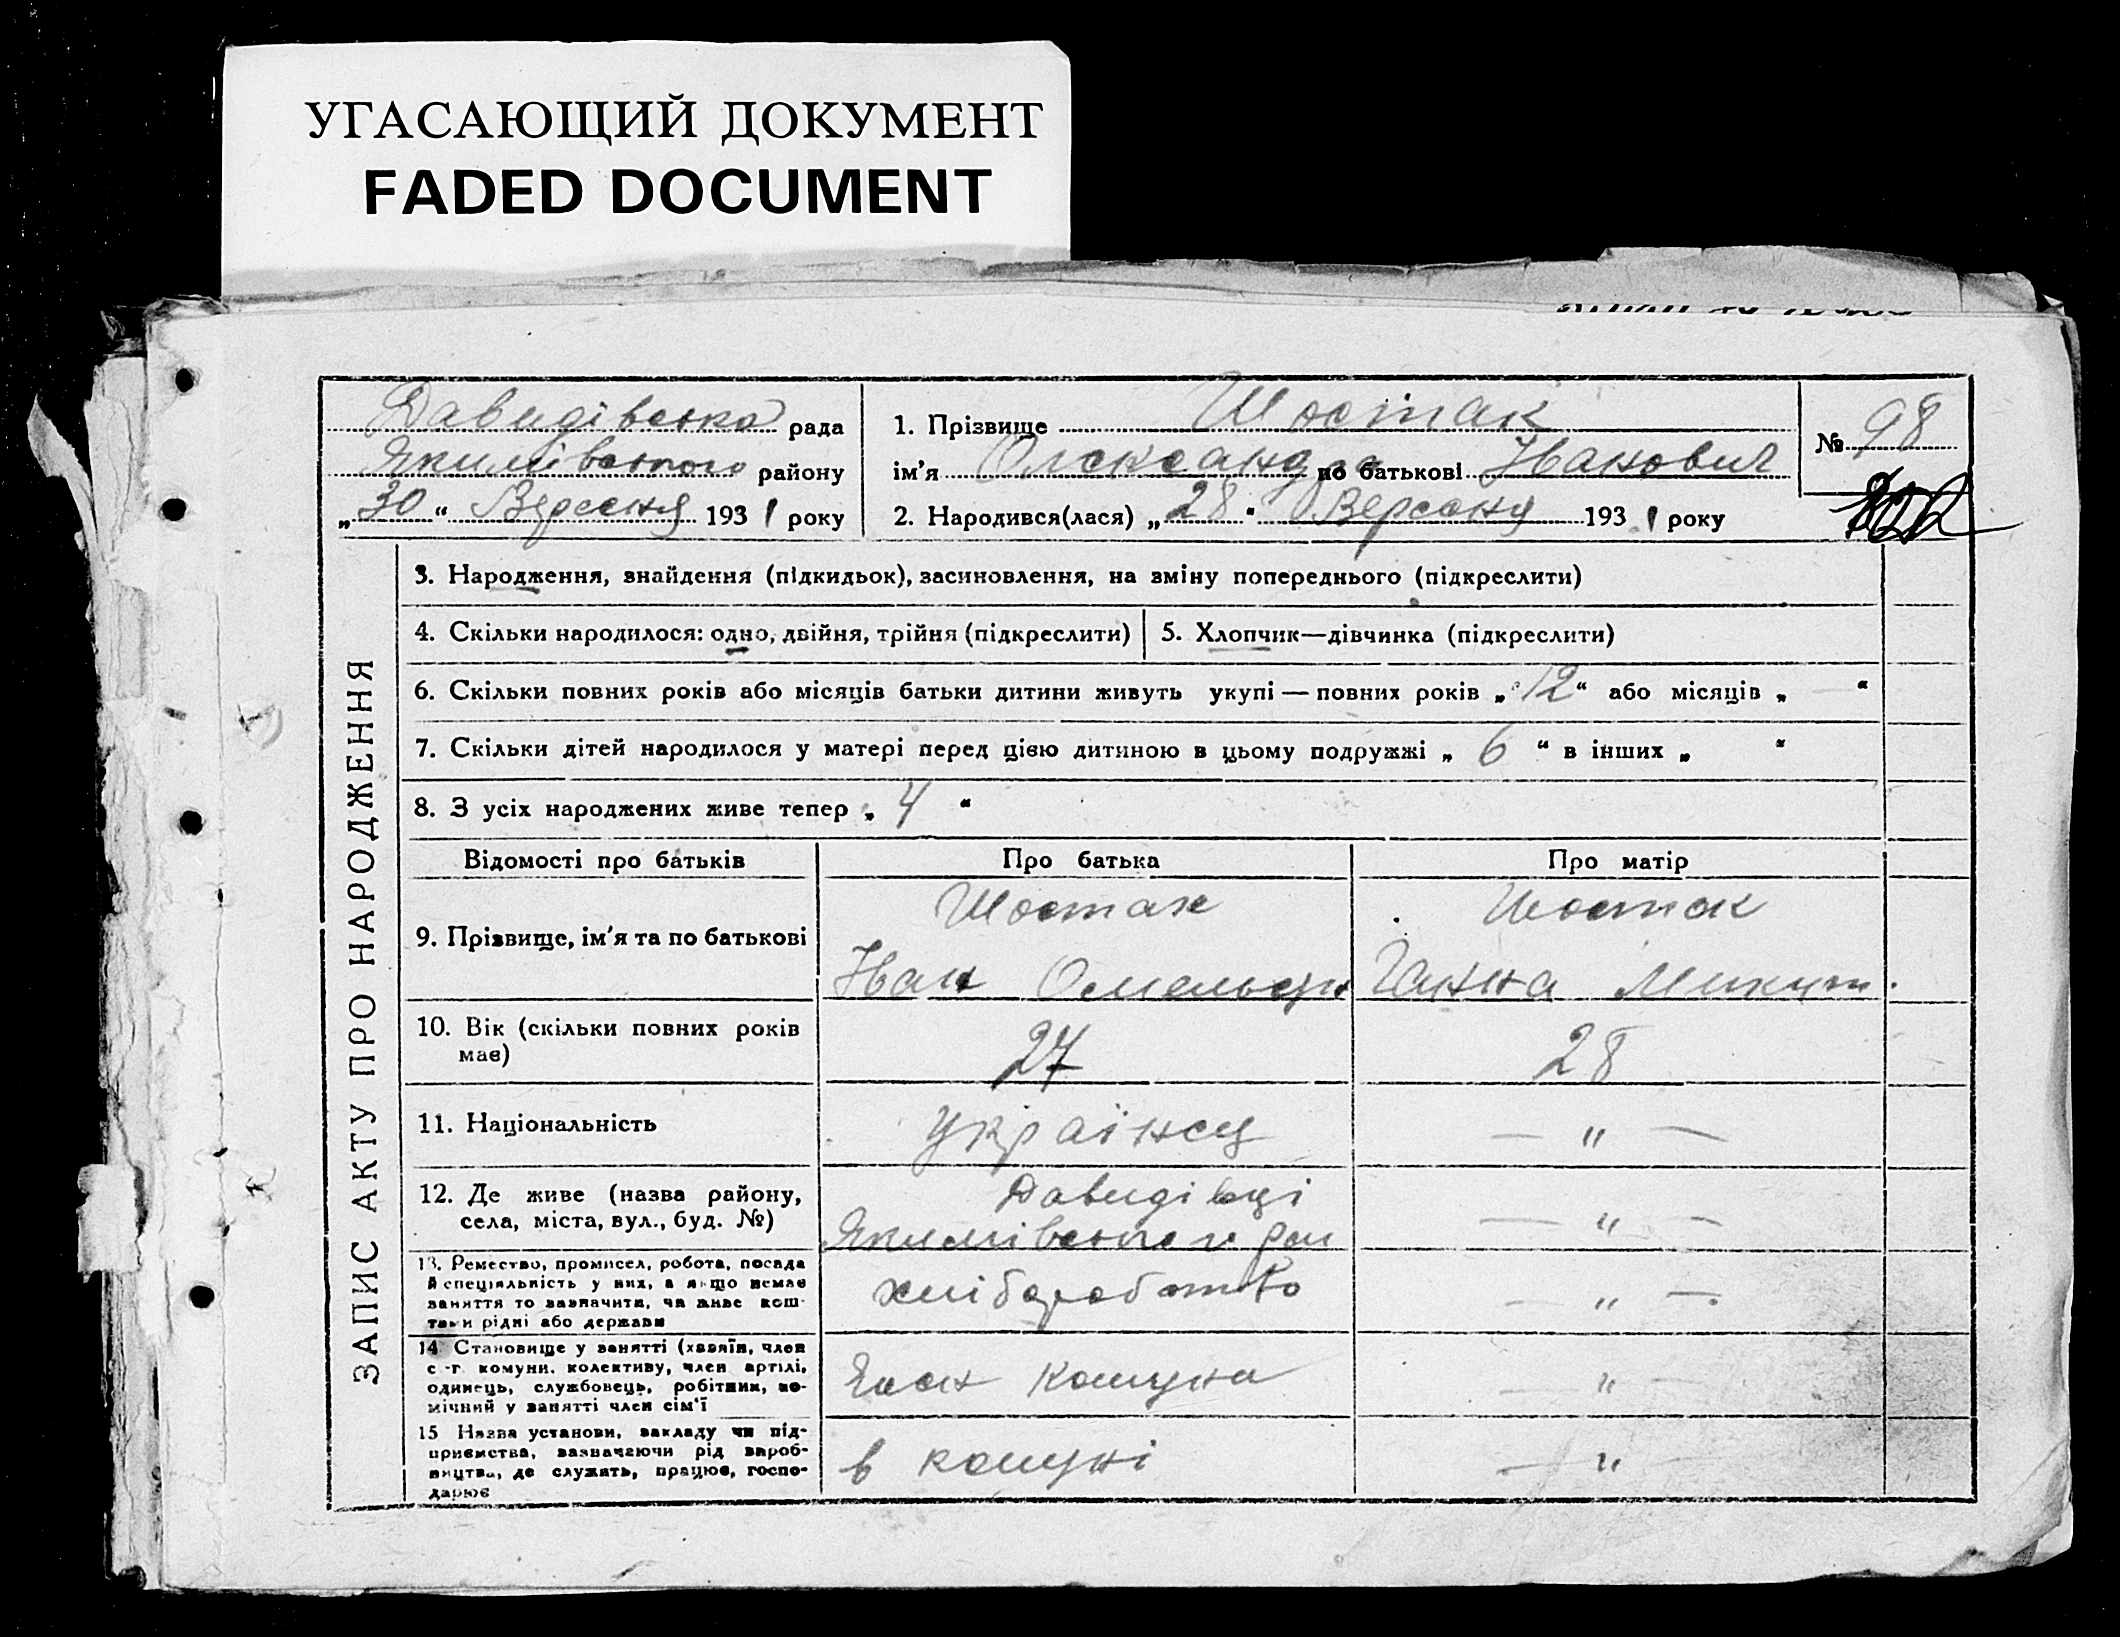 УГАСАЮЩИЙ ДОКУМЕНТ
FADED DOCUMENT
Давидівська рада
Якимівського району
„30“ Вересня 1931 року
1. Прізвище Шостак
ім’я Олександр по батькові Іванович
2. Народився(лася) „28“ Вересня 1931 року
№ 98
ЗАПИС АКТУ ПРО НАРОДЖЕННЯ
3. Народження, знайдення (підкидьок), засиновлення, на зміну попереднього (підкреслити)
4. Скільки народилося: одно, двійня, трійня (підкреслити)
5. Хлопчик—дівчинка (підкреслити)
6. Скільки повних років або місяців батьки дитини живуть укупі — повних років „12“ або місяців „—“
7. Скільки дітей народилося у матері перед цією дитиною в цьому подружжі „6“ в інших „ “
8. З усіх народжених живе тепер „4“
Відомості про батьків
Про батька
Про матір
9. Прізвище, ім’я та по батькові
Шостак
Іван Омельян
Шостак
Ганна Микит.
10. Вік (скільки повних років
має)
27
28
11. Національність
Українец
— „ —
12. Де живе (назва району,
села, міста, вул., буд. №)
Давидівці
Якимівського рай
— „ —
13. Ремество, промисел, робота, посада
й спеціяльність у них, а якщо немає
заняття то зазначити, чи живе кош-
тами рідні або держави
хліборобство
— „ —.
14 Становище у занятті (хазяїн, член
с.-г. комуни, колективу, член артілі,
одинець, службовець, робітник, по-
мічний у занятті член сім’ї
Член комуна
— „ —
15 Назва установи, закладу чи під-
приємства, зазначаючи рід вироб-
ництва, де служить, працює, госпо-
дарює
в комуні
— „ —